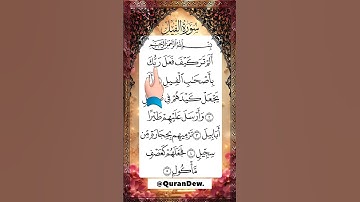 سُورَةُ الفِيل
بِسْمِ اللَّهِ الرَّحْمَٰنِ الرَّحِيمِ
أَلَمْ تَرَ كَيْفَ فَعَلَ رَبُّكَ
بِأَصْحَابِ الْفِيلِ
يَجْعَلْ كَيْدَهُمْ فِي
وَأَرْسَلَ عَلَيْهِمْ طَيْرًا
أَبَابِيلَ ٣ تَرْمِيهِمْ بِحِجَارَةٍ مِنْ
سِجِّيلٍ ٤ فَجَعَلَهُمْ كَعَصْفٍ
مَأْكُولٍ ٥
@QuranDew.